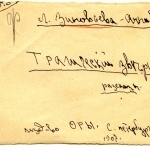 Л. Зиновьева-Анниб
Трагический звѣрин
разсказы
изд-во ОРЫ. С. Петербург
1907.